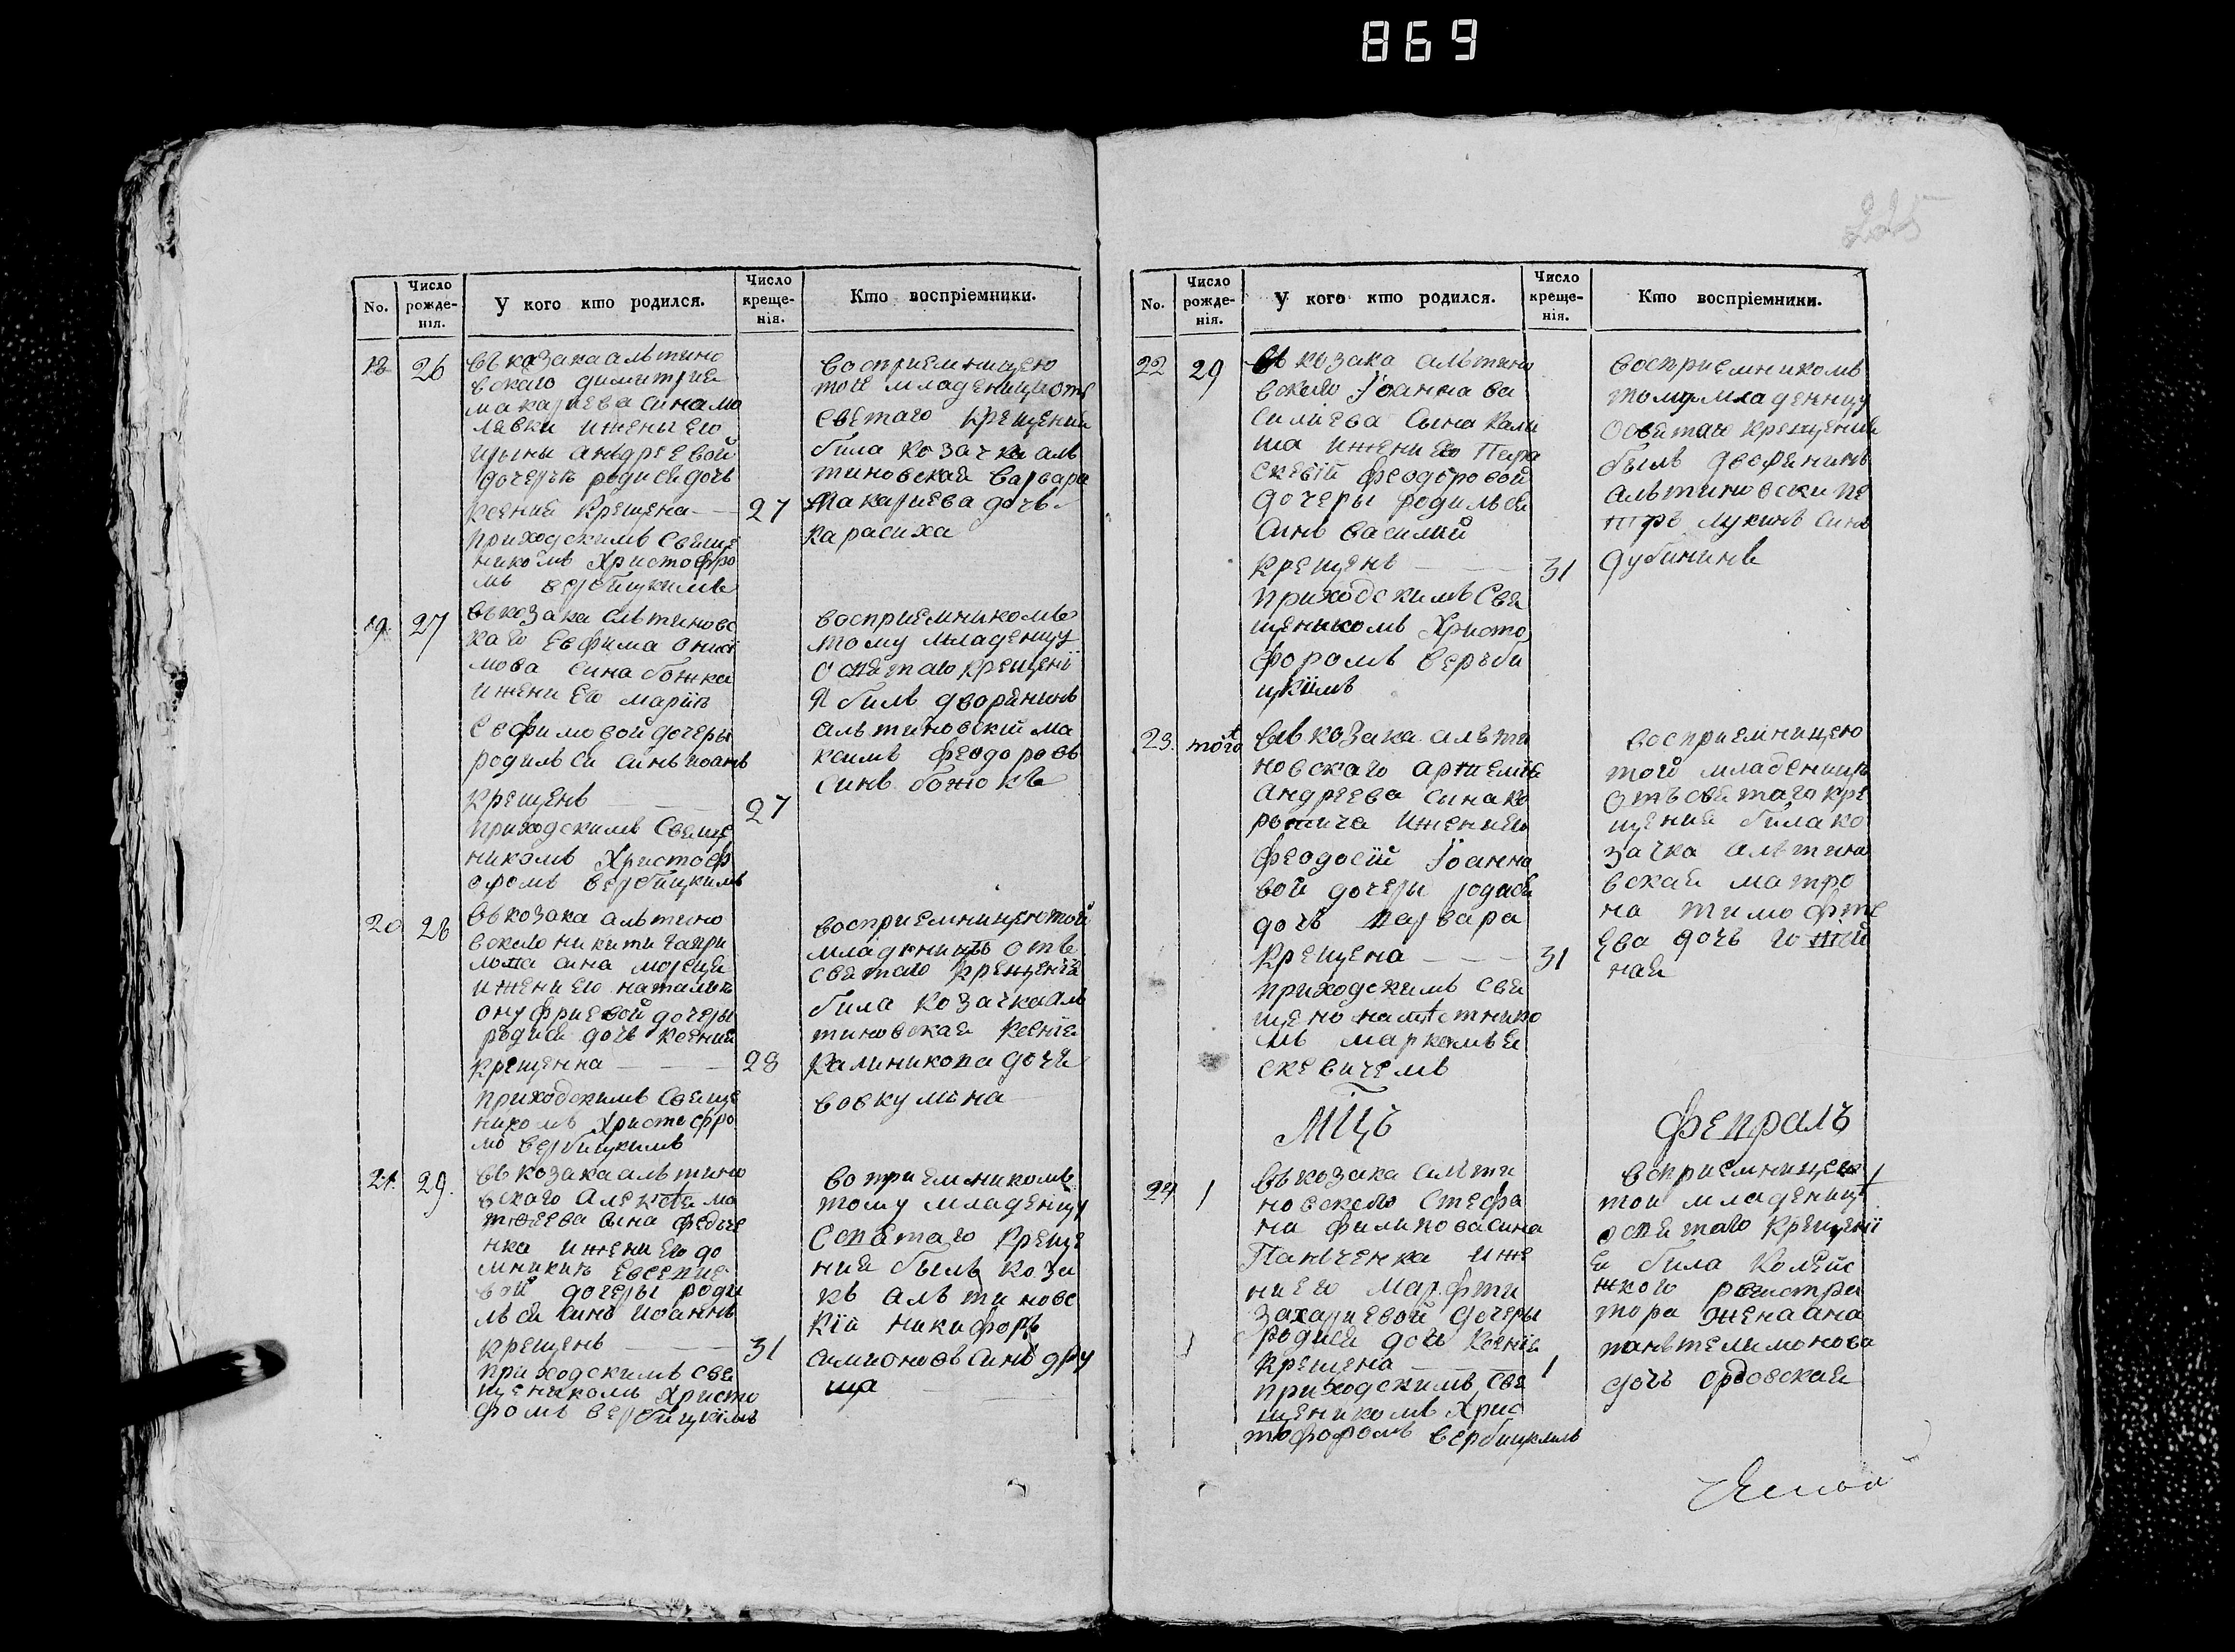 869
225
No.
Число рожде-нія.
У кого кто родился.
Число креще-нія.
Кто воспріемники.
18
26
въ казака альтино
вскаго димитрия
макариева сина мо
лявки ижены его
ирыны андреевой
дочеръ родися дочь
ксения крещена
27
приходскимъ свяще
никомъ Христофро
мъ вербицкимъ
восприемницею
тоя младеницы отъ
святаго крещения
била козачка аль
тиновская варвара
макариева дочь
карасиха
19.
27
въ козака алтиновс
каго евфима онис
мова сина божка
ижени его маріи
евфимовой дочеры
родилъся синъ иоанъ
крещенъ
27
приходскимъ свяще
никомъ Христоф
оромъ вербицкимъ
восприемникомъ
тому младенцу
о святаго крещені
я билъ дворянинъ
альтиновскій ма
ксимъ феодоровъ
синъ божокъ
20
28
въ козака альтино
вскаго никити гаври
лова сина
ижени его наталии
онуфриевой дочеры
родися дочь ксения
крещенна
28
приходскимъ свяще
никомъ Христофро
мо вербицкимъ
восприемницею той
младеницы отъ
святаго крещенія
била козачка аль
тиновская ксенія
калиникова дочь
вовкумна
21.
29.
въ козака альтино
вскаго алексея ма
твеева сина федче
нка ижени его до
мникии евсевие
вой дочеры роди
лься синъ иоаннъ
крещенъ
31
приходскимъ свя
щеникомъ Христо
фромъ вербицкимъ
вприемникомъ
тому младенцу
о святаго креще
ния былъ коза
къ альтиновс
кій никифоръ
симионовъ синъ дру
ща
No.
Число рожде-нія.
У кого кто родился.
Число креще-нія.
Кто воспріемники.
22
29
въ козака альтино
вскаго іоанна ва
силиева сына кали
ша ижени его пара
скевій феодоровой
дочеры родилься
синъ василий
крещенъ
31
приходскимъ свя
щеникомъ Христо
форомъ вербы
цкимъ
восприемникомъ
тому младенцу
о святаго крещения
былъ дворянинъ
альтиновски пе
тръ лукинъ синъ
дубининъ
23.
того
въ козака альти
новскаго артемія
андреева сына ко
ротича ижени его
феодосій іоанно
вой дочеры родися
дочь варвара
крещена
31
приходскимъ свя
щено наместнико
мъ
скевичемъ
восприемницею
той младеницы
отъ святаго кре
щения била ко
зачка альтино
вская матро
на тимофте
ева дочь
ная
мцъ
февраль
24
1
въ козака альти
новскаго стефа
на филипова сина
Панченка иже
ни его марфти
захариевой дочеры
родися дочь ксенія
крещена
1
приходскимъ свя
щеникомъ Хрис
тофоромъ вербицкимъ
вприемницею
той младениц
о святаго крещені
я била колейс
жкого регистра
тора жена ана
пантелимонова
дочь